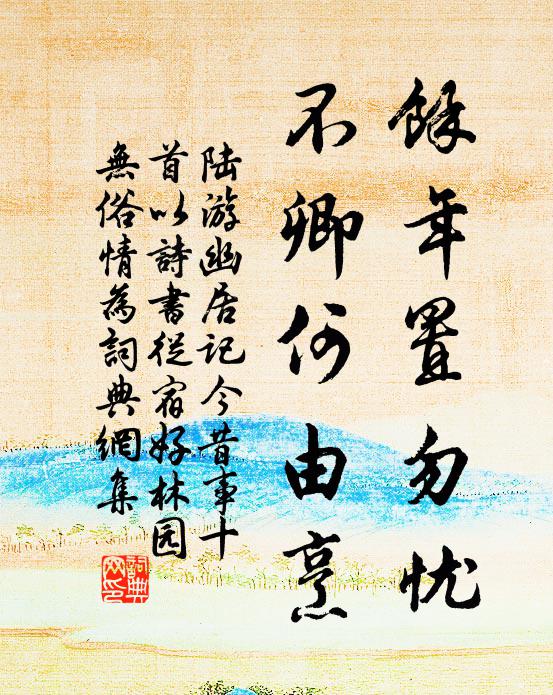 餘年置勿忧
不卿何由烹
陆游幽居记今昔事十
首以詩書從宿好林园
無俗情為詞典網集
詞典网印